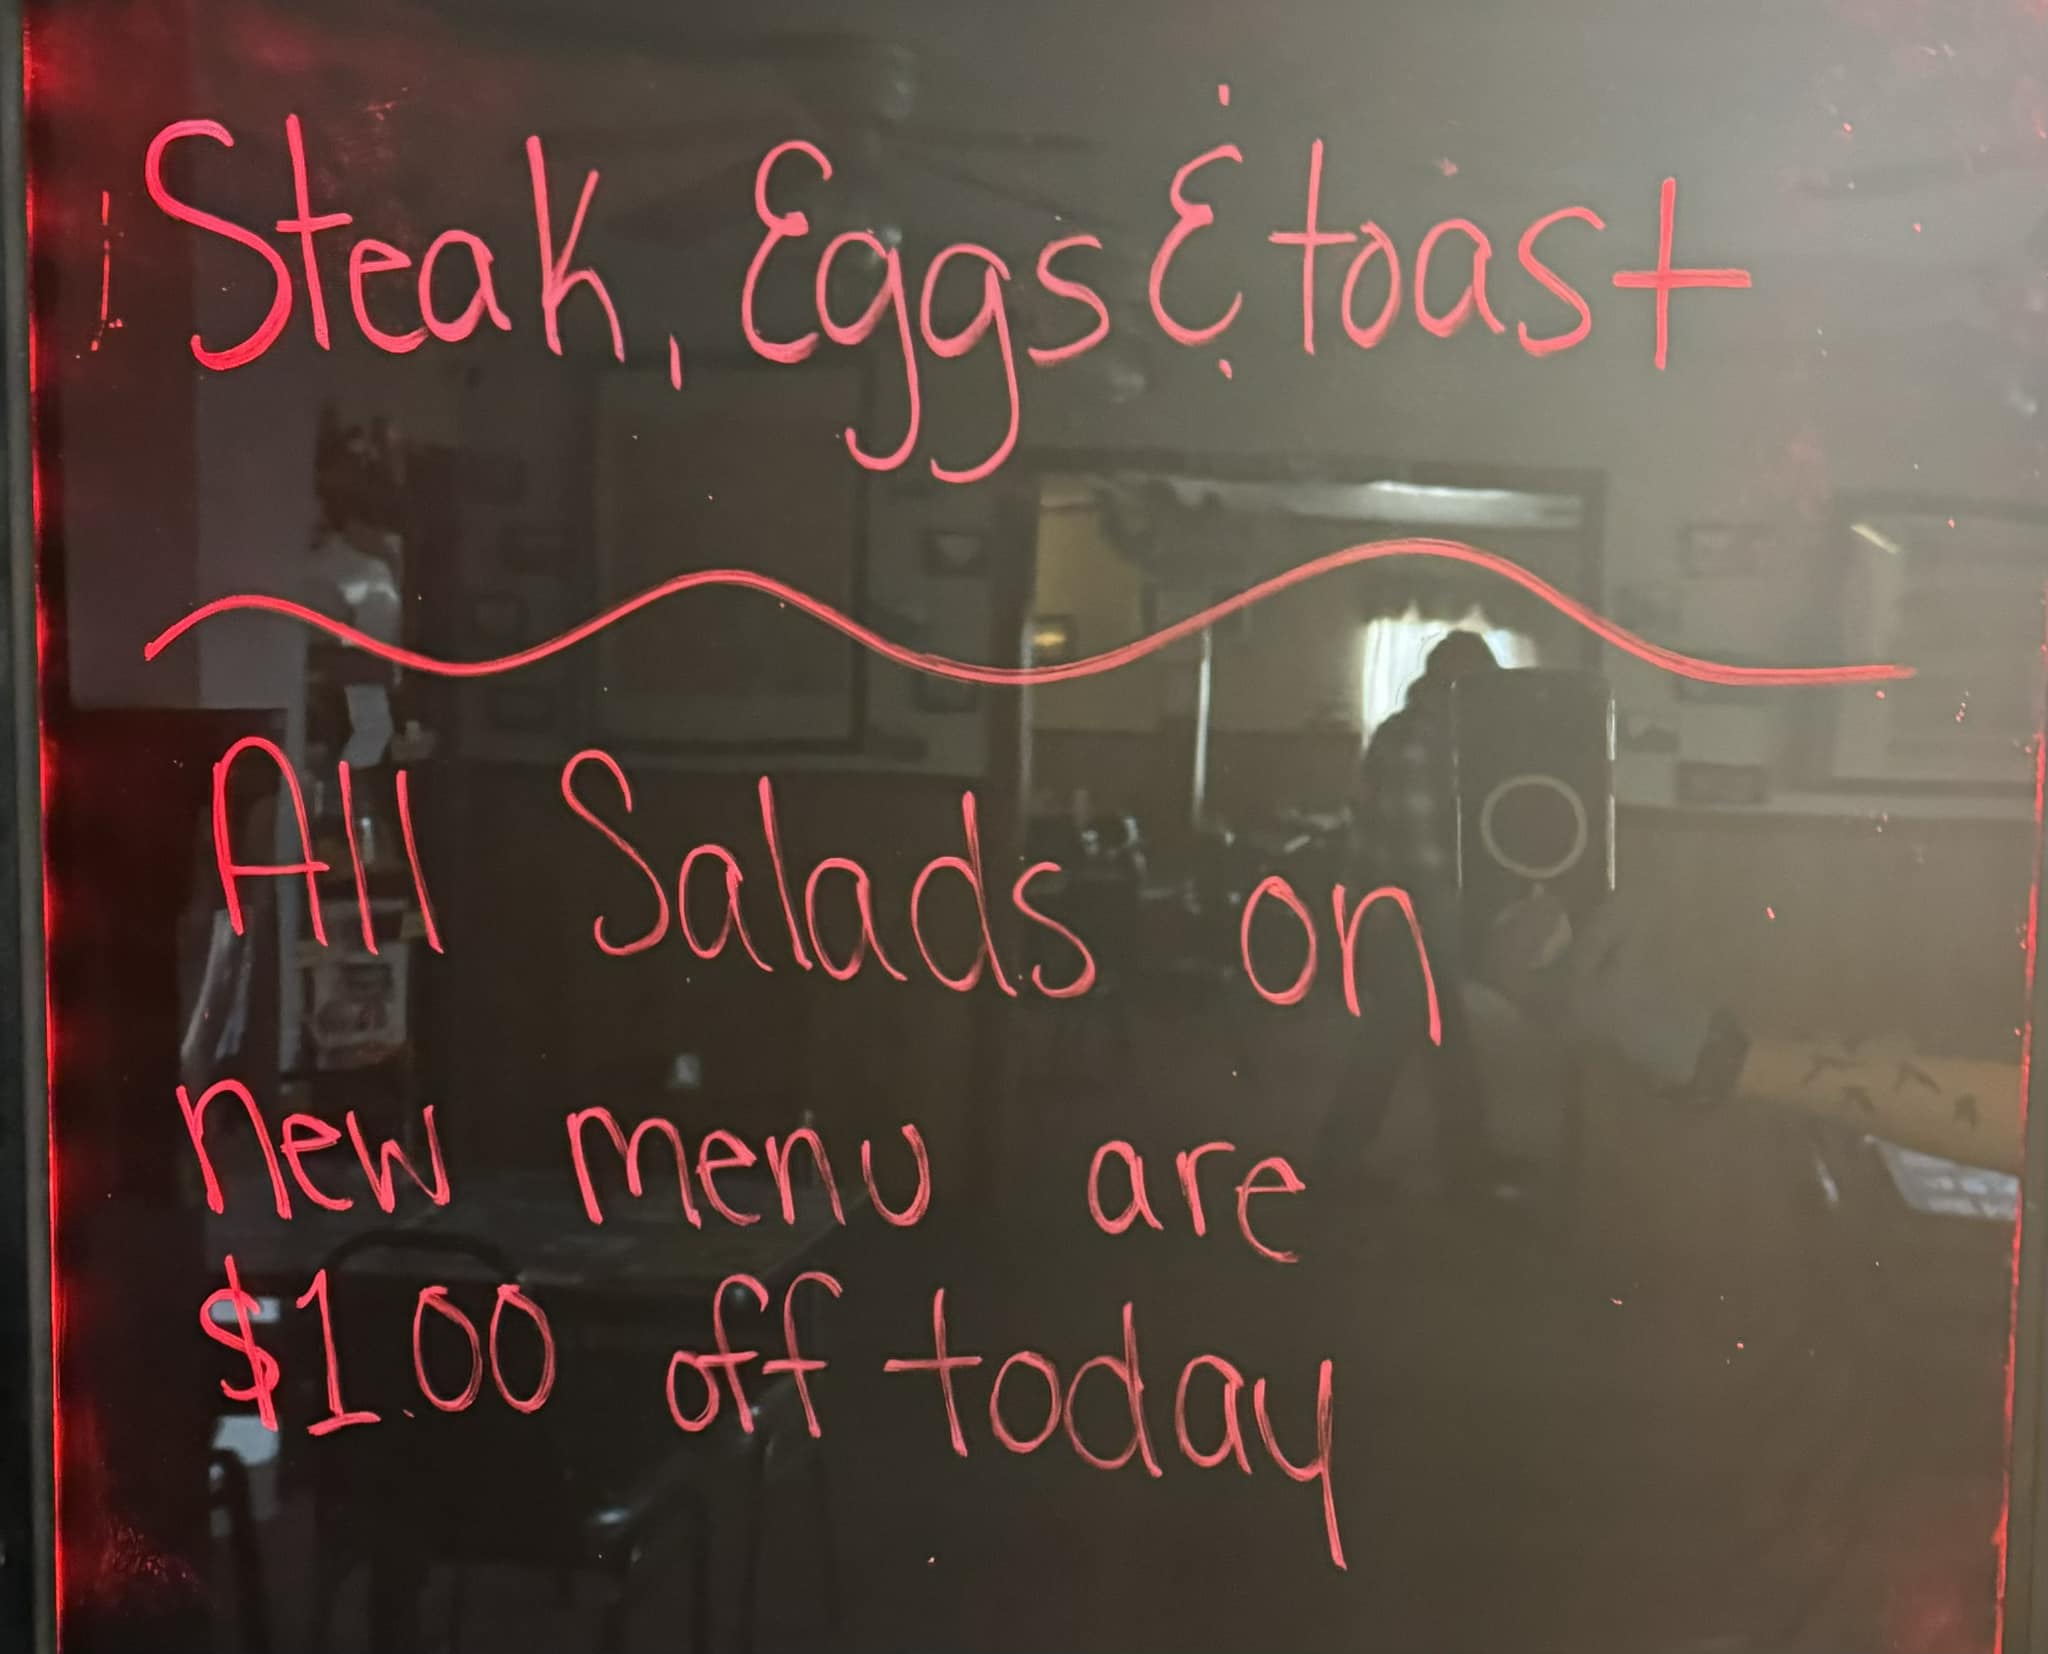 Steak, Eggs & toast
All Salads on
new menu are
$1.00 off today